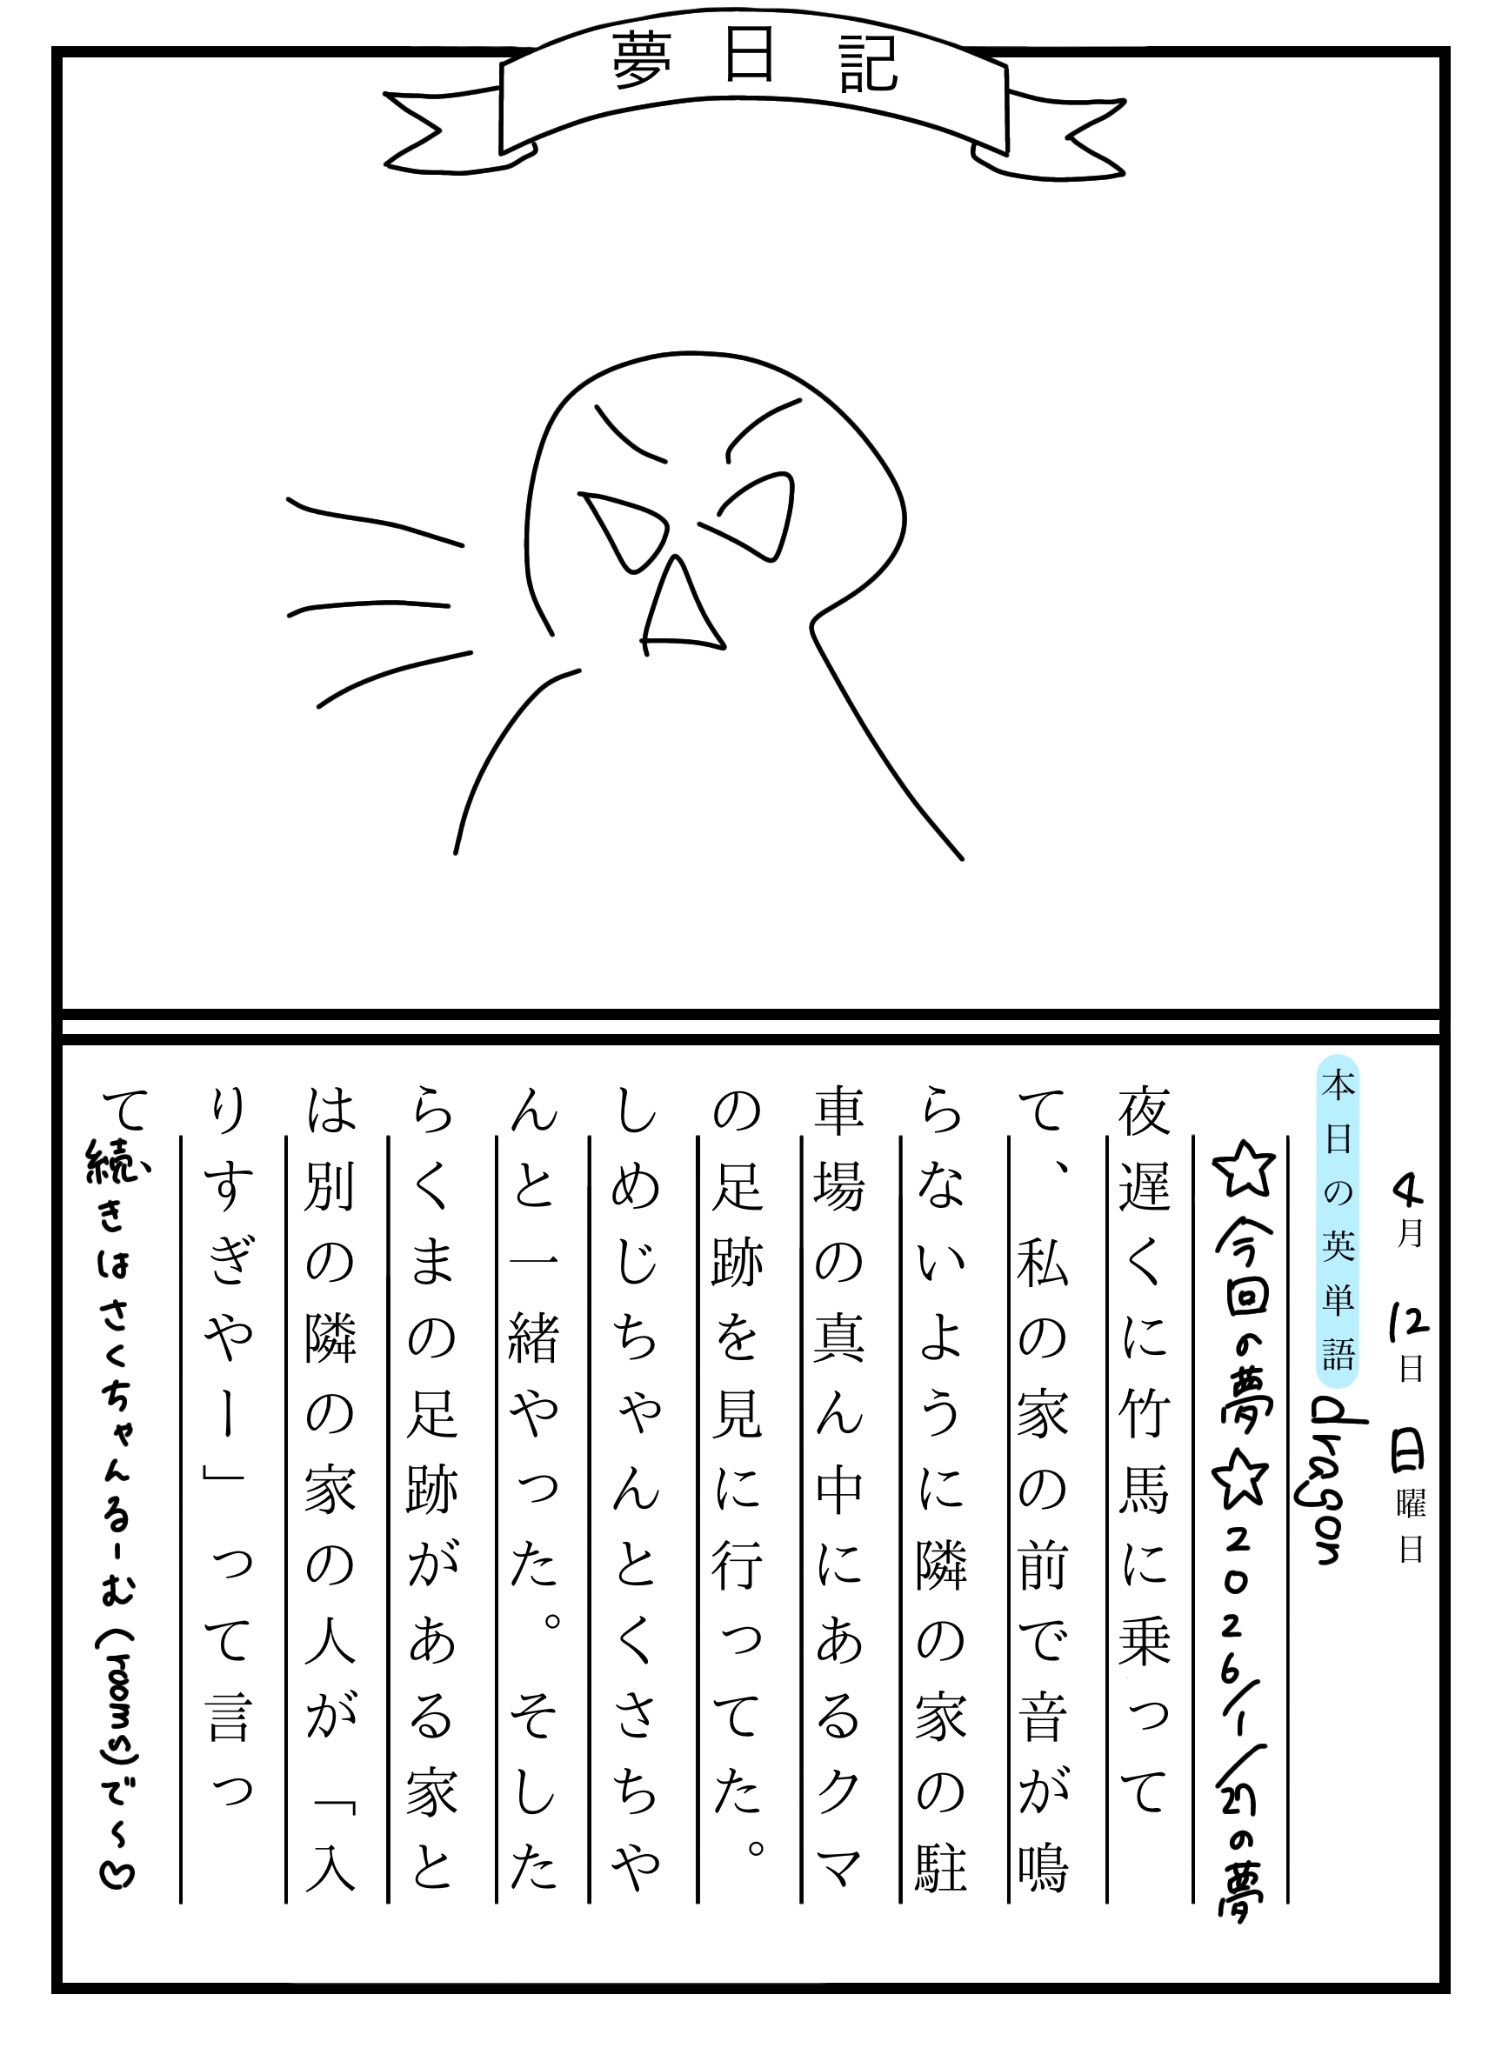 夢日記
4月 12日 日曜日
本日の英単語 dragon
☆今回の夢☆2026/1/27の夢
夜遅くに竹馬に乗って
て、私の家の前で音が鳴
らないように隣の家の駐
車場の真ん中にあるクマ
の足跡を見に行ってた。
しめじちゃんとくさちや
んと一緒やった。そした
らくまの足跡がある家と
は別の隣の家の人が「入
りすぎやー」って言っ
て、
続きはさくちゃんるーむ(rooms)で〜♡